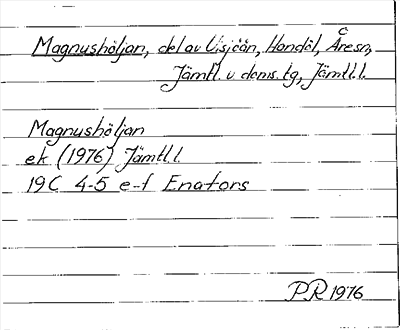 Magnushöljan, del av Visjöån, Handöl, Åresn,
Jämtl. v. doms. tg, Jämtl. l.
Magnushöljan
ek (1976) Jämtl. l.
19C 4-5 e-f Enafors
PR 1976